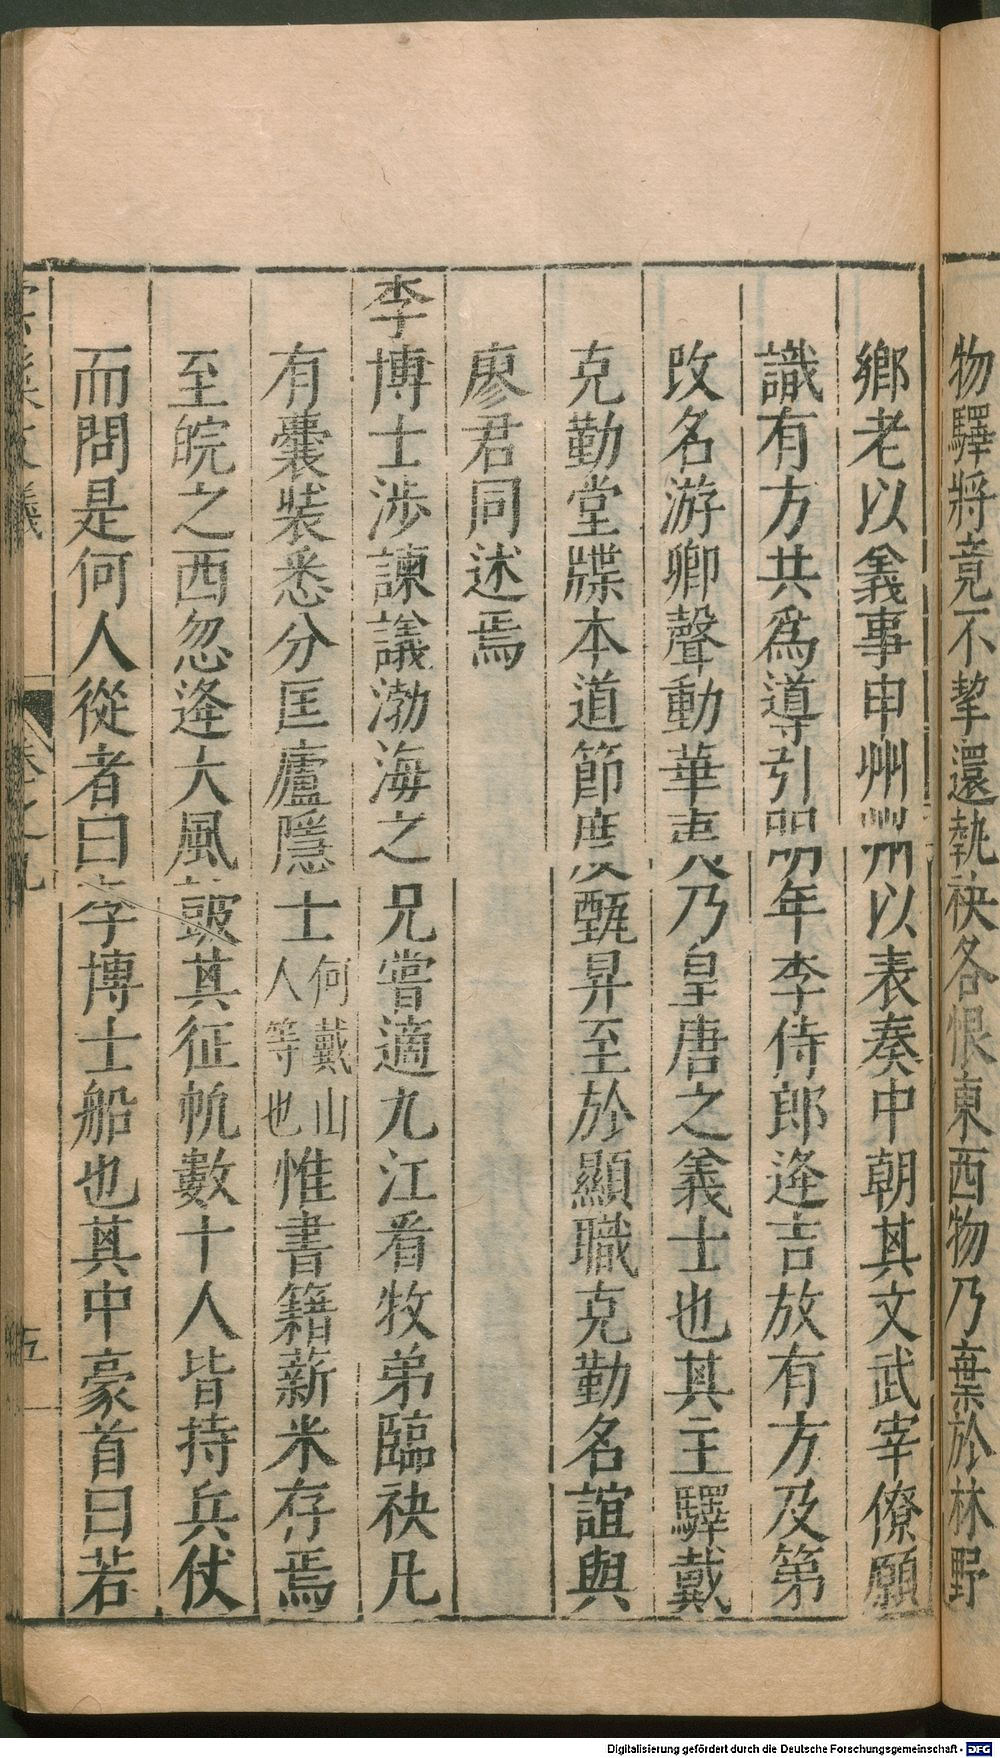 物驛將竟不挈還執袂各恨東西物乃棄於林野
鄉老以義事申州州以表奏中朝其文武宰僚願
識有方共爲導引明年李侍郎逢吉放有方及第
改名游卿聲動華夷乃皇唐之義士也其主驛戴
克勤堂牒本道節度甄昇至於顯職克勤名誼與
廖君同述焉
李博士涉諫議渤海之兄嘗適九江看牧弟臨袂凡
有囊裝悉分匡廬隱士何戴山人等也惟書籍薪米存焉
至皖之西忽逢大風鼓其征帆數十人皆持兵仗
而問是何人從者曰李博士船也其中豪首曰若
卷之九
五
Digitalisierung gefördert durch die Deutsche Forschungsgemeinschaft - DFG